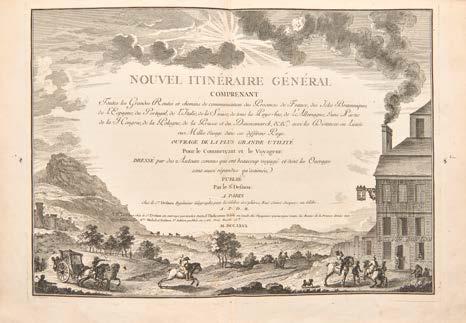 NOUVEL ITINÉRAIRE GÉNÉRAL
COMPRENANT
Toutes les Grandes Routes et chemins de communication des Provinces de France, des Isles Britanniques
de l'Espagne, du Portugal, de l'Italie, de la Suisse, de tous les Pays-bas, de l'Allemagne, d'une Partie
de la Hongrie, de la Pologne, de la Prusse et du Dannemarck, &c. avec les Distances en Lieues
ou Milles d'usage dans ces différens Pays.
OUVRAGE DE LA PLUS GRANDE UTILITÉ
Pour le Commerçant et le Voyageur
DRESSÉ par des Auteurs connus qui ont beaucoup voyagé et dont les Ouvrages
sont aussi répandus qu'estimés,
PUBLIÉ
Par le Sr. Desnos
A PARIS
A. P. D. R.